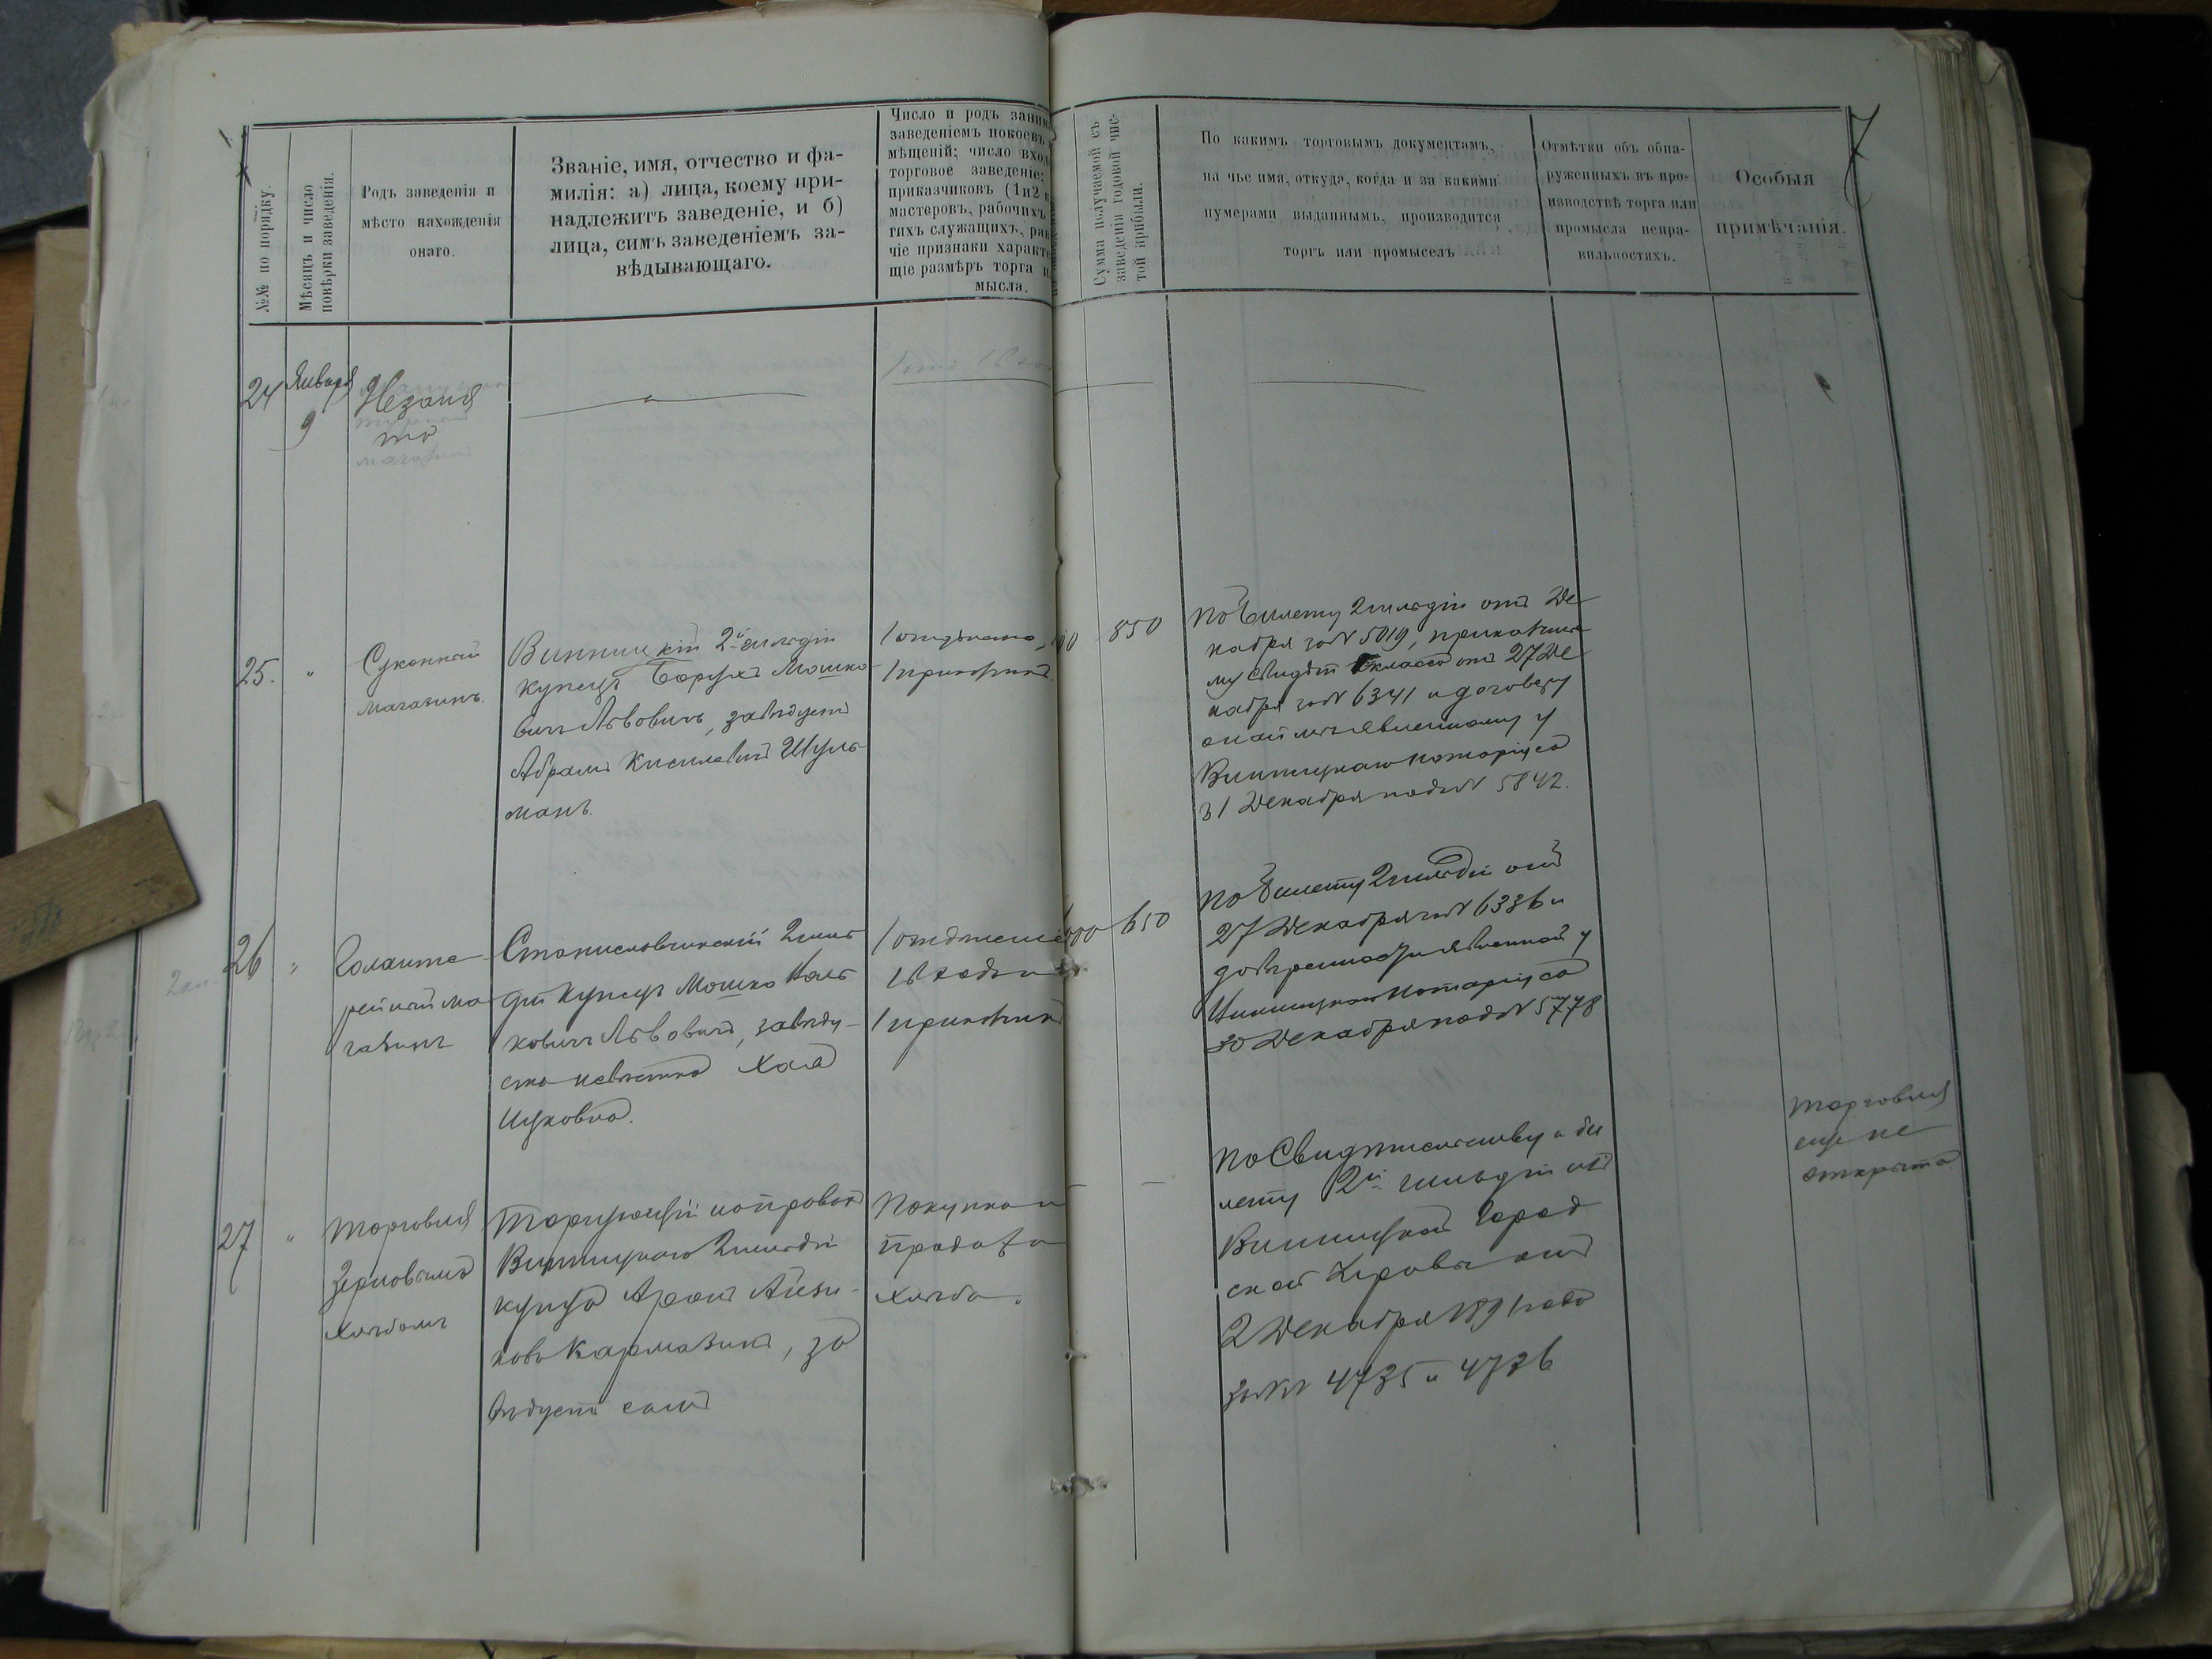 №№ по порядку.
Мѣсяцъ и число
повѣрки заведенія.
Родъ заведенія и
мѣсто нахожденія
онаго.
Званіе, имя, отчество и фа-
милія: а) лица, коему при-
надлежитъ заведеніе, и б)
лица, симъ заведеніемъ за-
вѣдывающаго.
Число и родъ заним
заведеніемъ покоевъ
мѣщеній; число вход
торговое заведеніе;
приказчиковъ (1 и 2
мастеровъ, рабочихъ
гихъ служащихъ, рав
чіе признаки характ
щіе размѣръ торга и
мысла.
Сумма получаемой съ
заведенія годовой чис-
той прибыли.
По какимъ торговымъ документамъ,
на чье имя, откуда, когда и за какими
нумерами выданнымъ, производится
торгъ или промыселъ
Отмѣтки объ обна-
руженныхъ въ про-
изводствѣ торга или
промысла непра-
вильностяхъ.
Особыя
примѣчанія.
7
24
Января
9
Незаня
то
25.
"
Суконный
магазинъ.
Винницкій 2й гильдіи
купецъ Борухъ Мошко
вичъ Львовичъ, завѣдуетъ
Абрамъ Кисилевичъ Шуль
манъ.
1 отдѣленіе
1 прикащикъ
850
По билету 2 гильдіи отъ Де
кабря за № 5019, прикащичь
му свидѣт класса отъ 27 Де
кабря за № 6341 и договору
явленному у
Винницкаго нотаріуса
31 Декабря подъ № 5842.
26
"
Галанте
рейный ма
газинъ
Станиславчинскій 2 гиль
діи купецъ Мошко
ковичъ Львовичъ, завѣду-
етъ невѣстка Хая
Ицковна.
1 отдѣленіе
1 входъ и
1 прикащикъ
650
По билету 2 гильдіи отъ
27 Декабря за № 6336 и
довѣренности явленной у
Винницкаго нотаріуса
30 Декабря подъ № 5778
27
"
Торговля
зерновымъ
хлѣбомъ
Торгующій на правахъ
Винницкаго 2 гильдіи
купца Аронъ Айзи-
ковъ Кармазинъ, за
вѣдуетъ самъ
Покупка и
продажа
хлѣба.
—
По свидѣтельству и би
лету 2й гильдіи изъ
Винницкой Город
ской Управы отъ
2 Декабря 1891 года
за №№ 4735 и 4736
Торговля
еще не
открыта